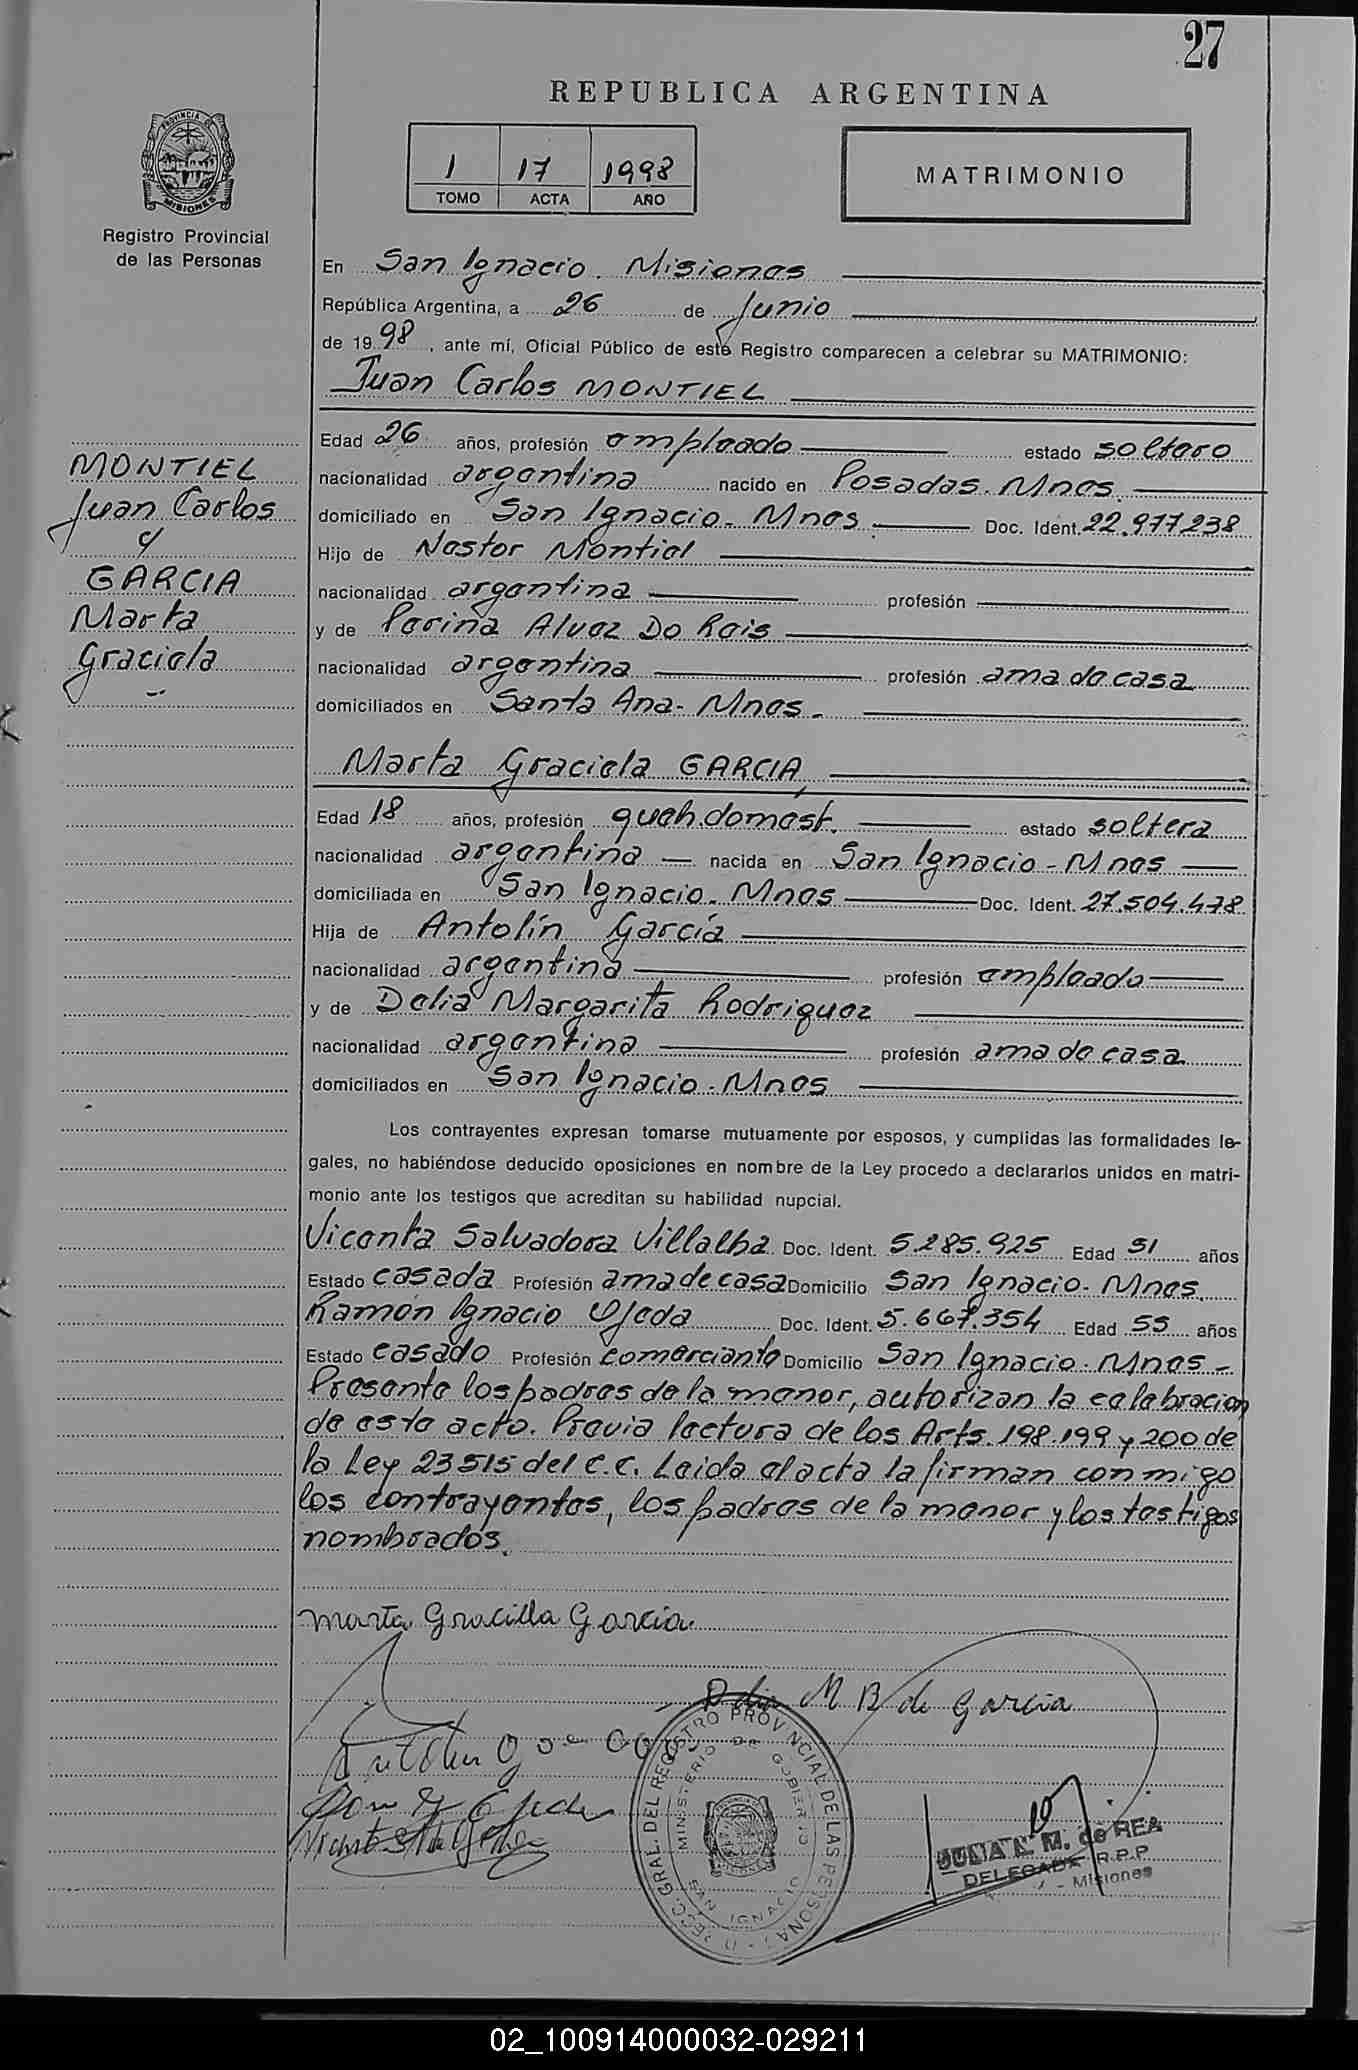 27
REPUBLICA ARGENTINA
1 17 1998
TOMO ACTA AÑO
MATRIMONIO
PROVINCIA DE MISIONES
Registro Provincial
de las Personas
En San Ignacio. Misiones
República Argentina, a 26 de Junio
de 1998, ante mí, Oficial Público de este Registro comparecen a celebrar su MATRIMONIO:
Juan Carlos MONTIEL
Edad 26 años, profesión empleado estado soltero
nacionalidad argentina nacido en Posadas. Mnes
domiciliado en San Ignacio - Mnes Doc. Ident. 22.977.238
Hijo de Nestor Montiel
nacionalidad argentina profesión
y de Perina Alvez Do Reis
nacionalidad argentina profesión ama de casa
domiciliados en Santa Ana - Mnes.
MONTIEL
Juan Carlos
y
GARCIA
Marta
Graciela
Marta Graciela GARCIA
Edad 18 años, profesión queh. domest. estado soltera
nacionalidad argentina nacida en San Ignacio - Mnes
domiciliada en San Ignacio. Mnes Doc. Ident. 27.504.478
Hija de Antolín García
nacionalidad argentina profesión empleado
y de Delia Margarita Rodriguez
nacionalidad argentina profesión ama de casa
domiciliados en San Ignacio - Mnes
Los contrayentes expresan tomarse mutuamente por esposos, y cumplidas las formalidades le-
gales, no habiéndose deducido oposiciones en nombre de la Ley procedo a declararlos unidos en matri-
monio ante los testigos que acreditan su habilidad nupcial.
Vicenta Salvadora Villalba Doc. Ident. 5.285.925 Edad 51 años
Estado casada Profesión ama de casa Domicilio San Ignacio - Mnes.
Ramón Ignacio Ojeda Doc. Ident. 5.667.354 Edad 55 años
Estado casado Profesión comerciante Domicilio San Ignacio. Mnes -
Presente los padres de la menor, autorizan la celebracion
de este acto. Previa lectura de los Arts. 198.199 y 200 de
la Ley 23515 del C.C. Leida el acta la firman conmigo
los contrayentes, los padres de la menor y los testigos
nombrados.
Marta Gracilla Garcia
Delia M R de Garcia
DIRECC. GRAL. DEL REGISTRO PROVINCIAL DE LAS PERSONAS
MINISTERIO DE GOBIERNO
SAN IGNACIO
M. de REA
DELEGADA R.P.P.
- Misiones
02_100914000032-029211